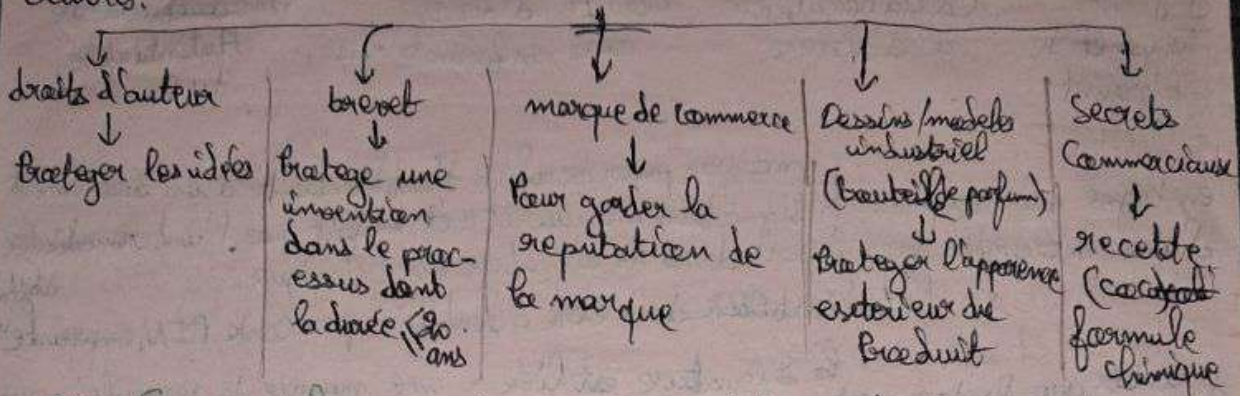 droits d'auteur
↓
Proteger les idées
brevet
↓
Protege une
invention
dans le proc-
essus dont
la durée (20.
ans
marque de commerce
↓
Pour garder la
reputation de
la marque
Dessins/modeles
industriel
(bouteille de parfum)
↓
Proteger l'apparence
exterieur du
Produit
Secrets
Commerciaux
↓
recette
formule
chimique